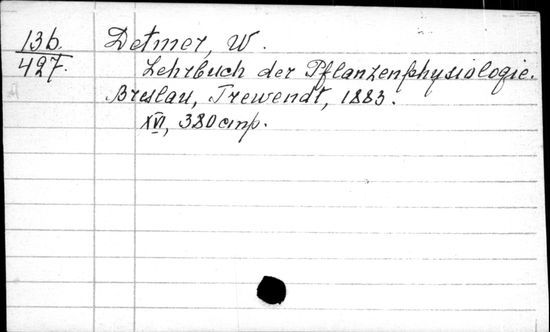 136.
427.
Detmer, W.
Lehrbuch der Pflanzenphysiologie.
Breslau, Trewendt, 1883.
XVI, 380 стр.